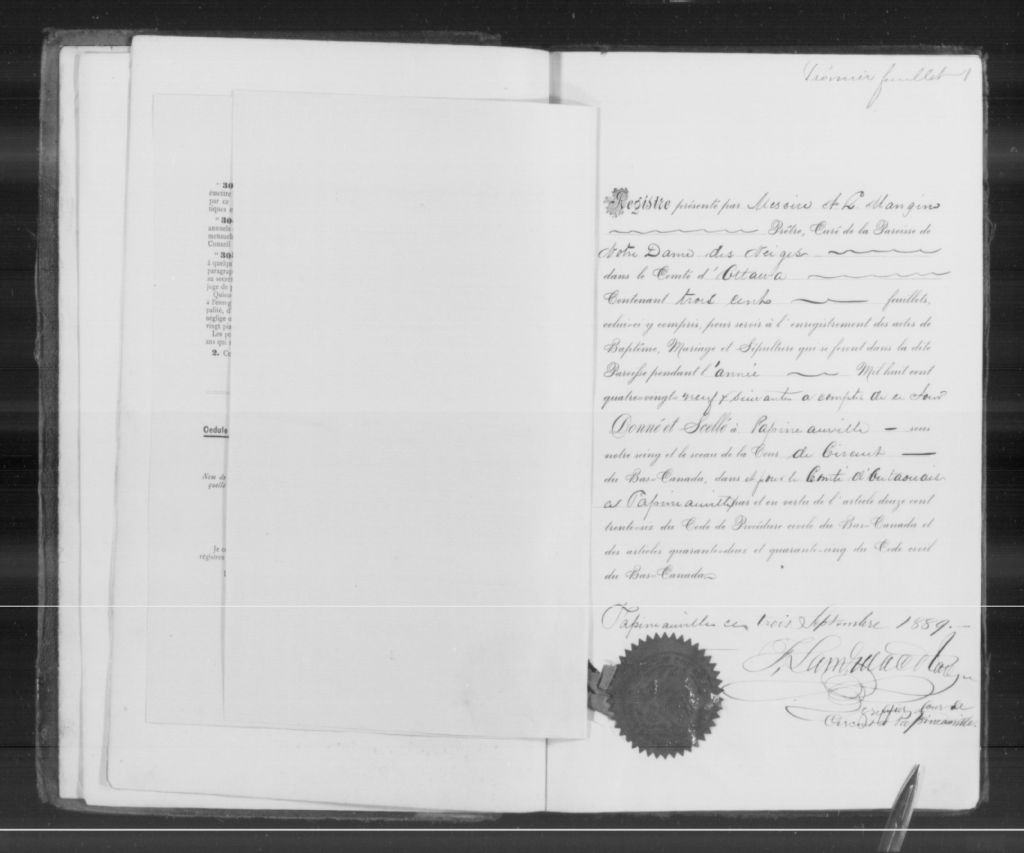 Premier feuillet 1
" 30
émettre
par ce
tiques e
" 30
annuele
mensuel
Conseil
" 30
à quelqu
paragrap
au secret
juge de p
Quicon
à l'enreg
palité, d
néglige o
vingt pia
Les po
ans qui s
2. Ce
Cedule
Nom de
quelle
Je c
régistres
Registre présenté par Messire A L Mangin
Prêtre, Curé de la Paroisse de
Notre Dame des Neiges
dans le Comté d'Ottawa
Contenant trois cents feuillets,
celui-ci y compris, pour servir à l'enregistrement des actes de
Baptême, Mariage et Sépulture qui se feront dans la dite
Paroisse pendant l'année Mil huit cent
quatre-vingt neuf & suivantes a compter de ce Jour
Donné et Scellé à Papineauville – sous
notre seing et le sceau de la Cour de Circuit —
du Bas-Canada, dans et pour le Comté d'Outaouais
a Papineauville par et en vertu de l'article douze cent
trente-six du Code de Procédure civile du Bas-Canada et
des articles quarante-deux et quarante-cinq du Code civil
du Bas-Canada
Papineauville ce trois Septembre 1889.–
Greffier Cour de
Circuit Papineauville.